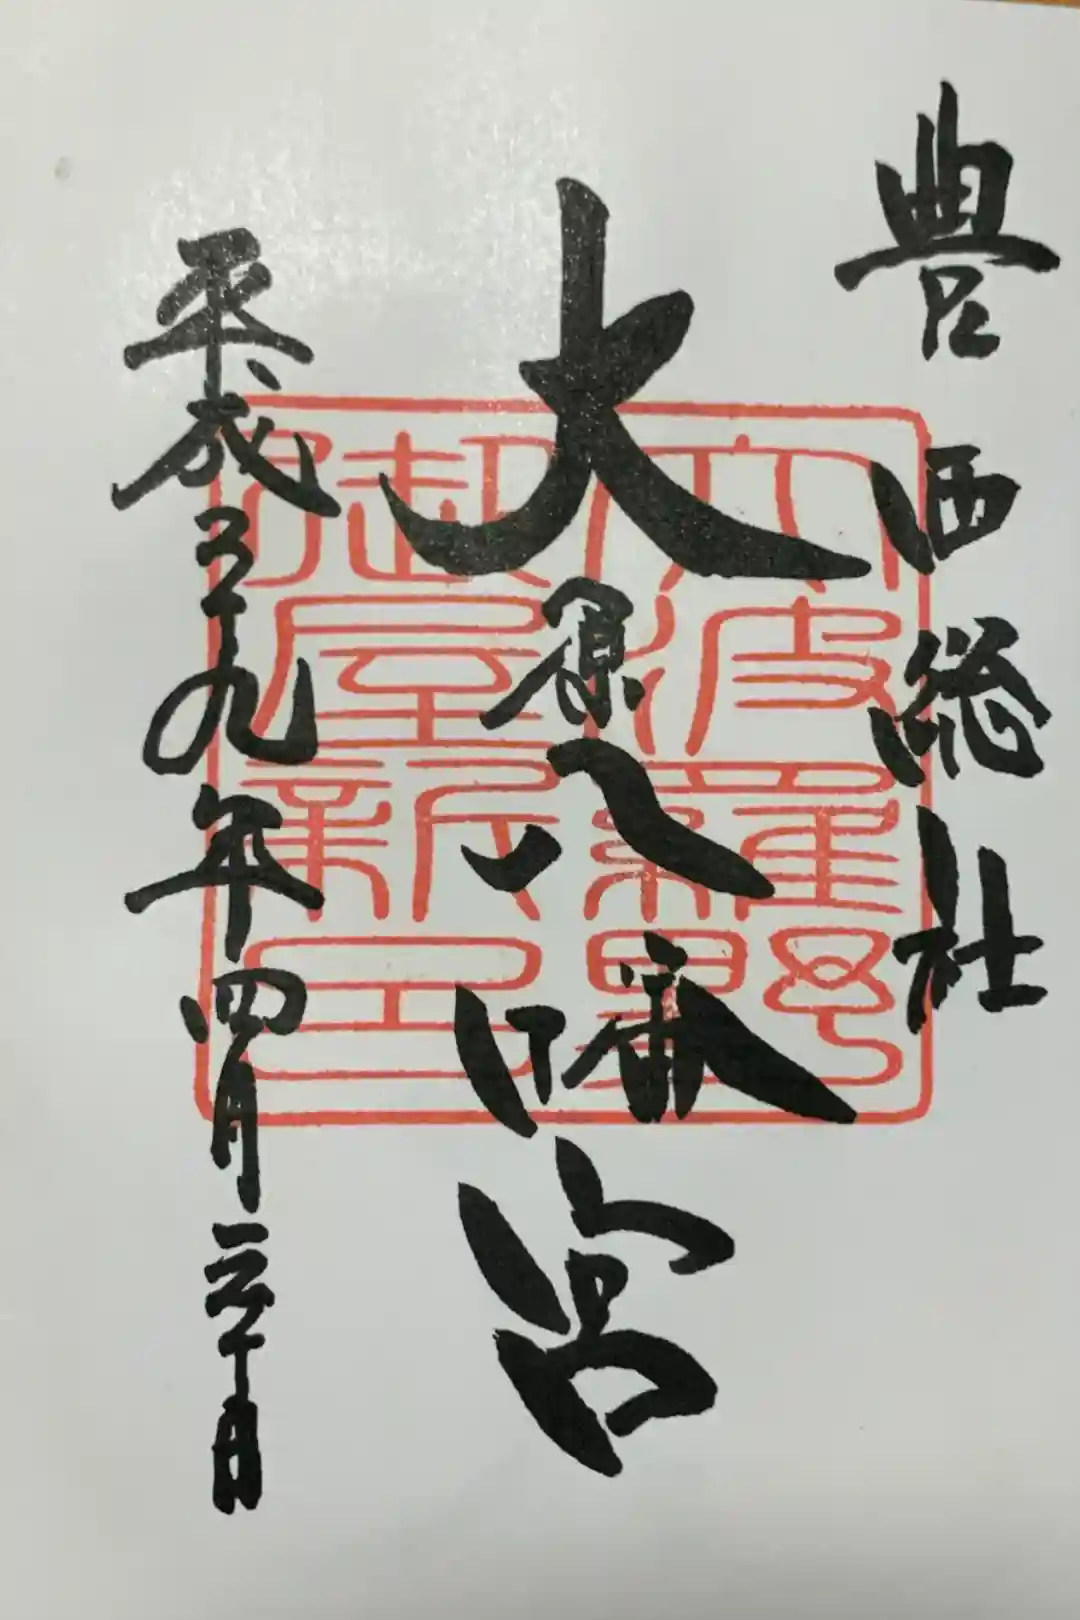 豊西総社
大原八幡宮
平成二十九年四月三十日